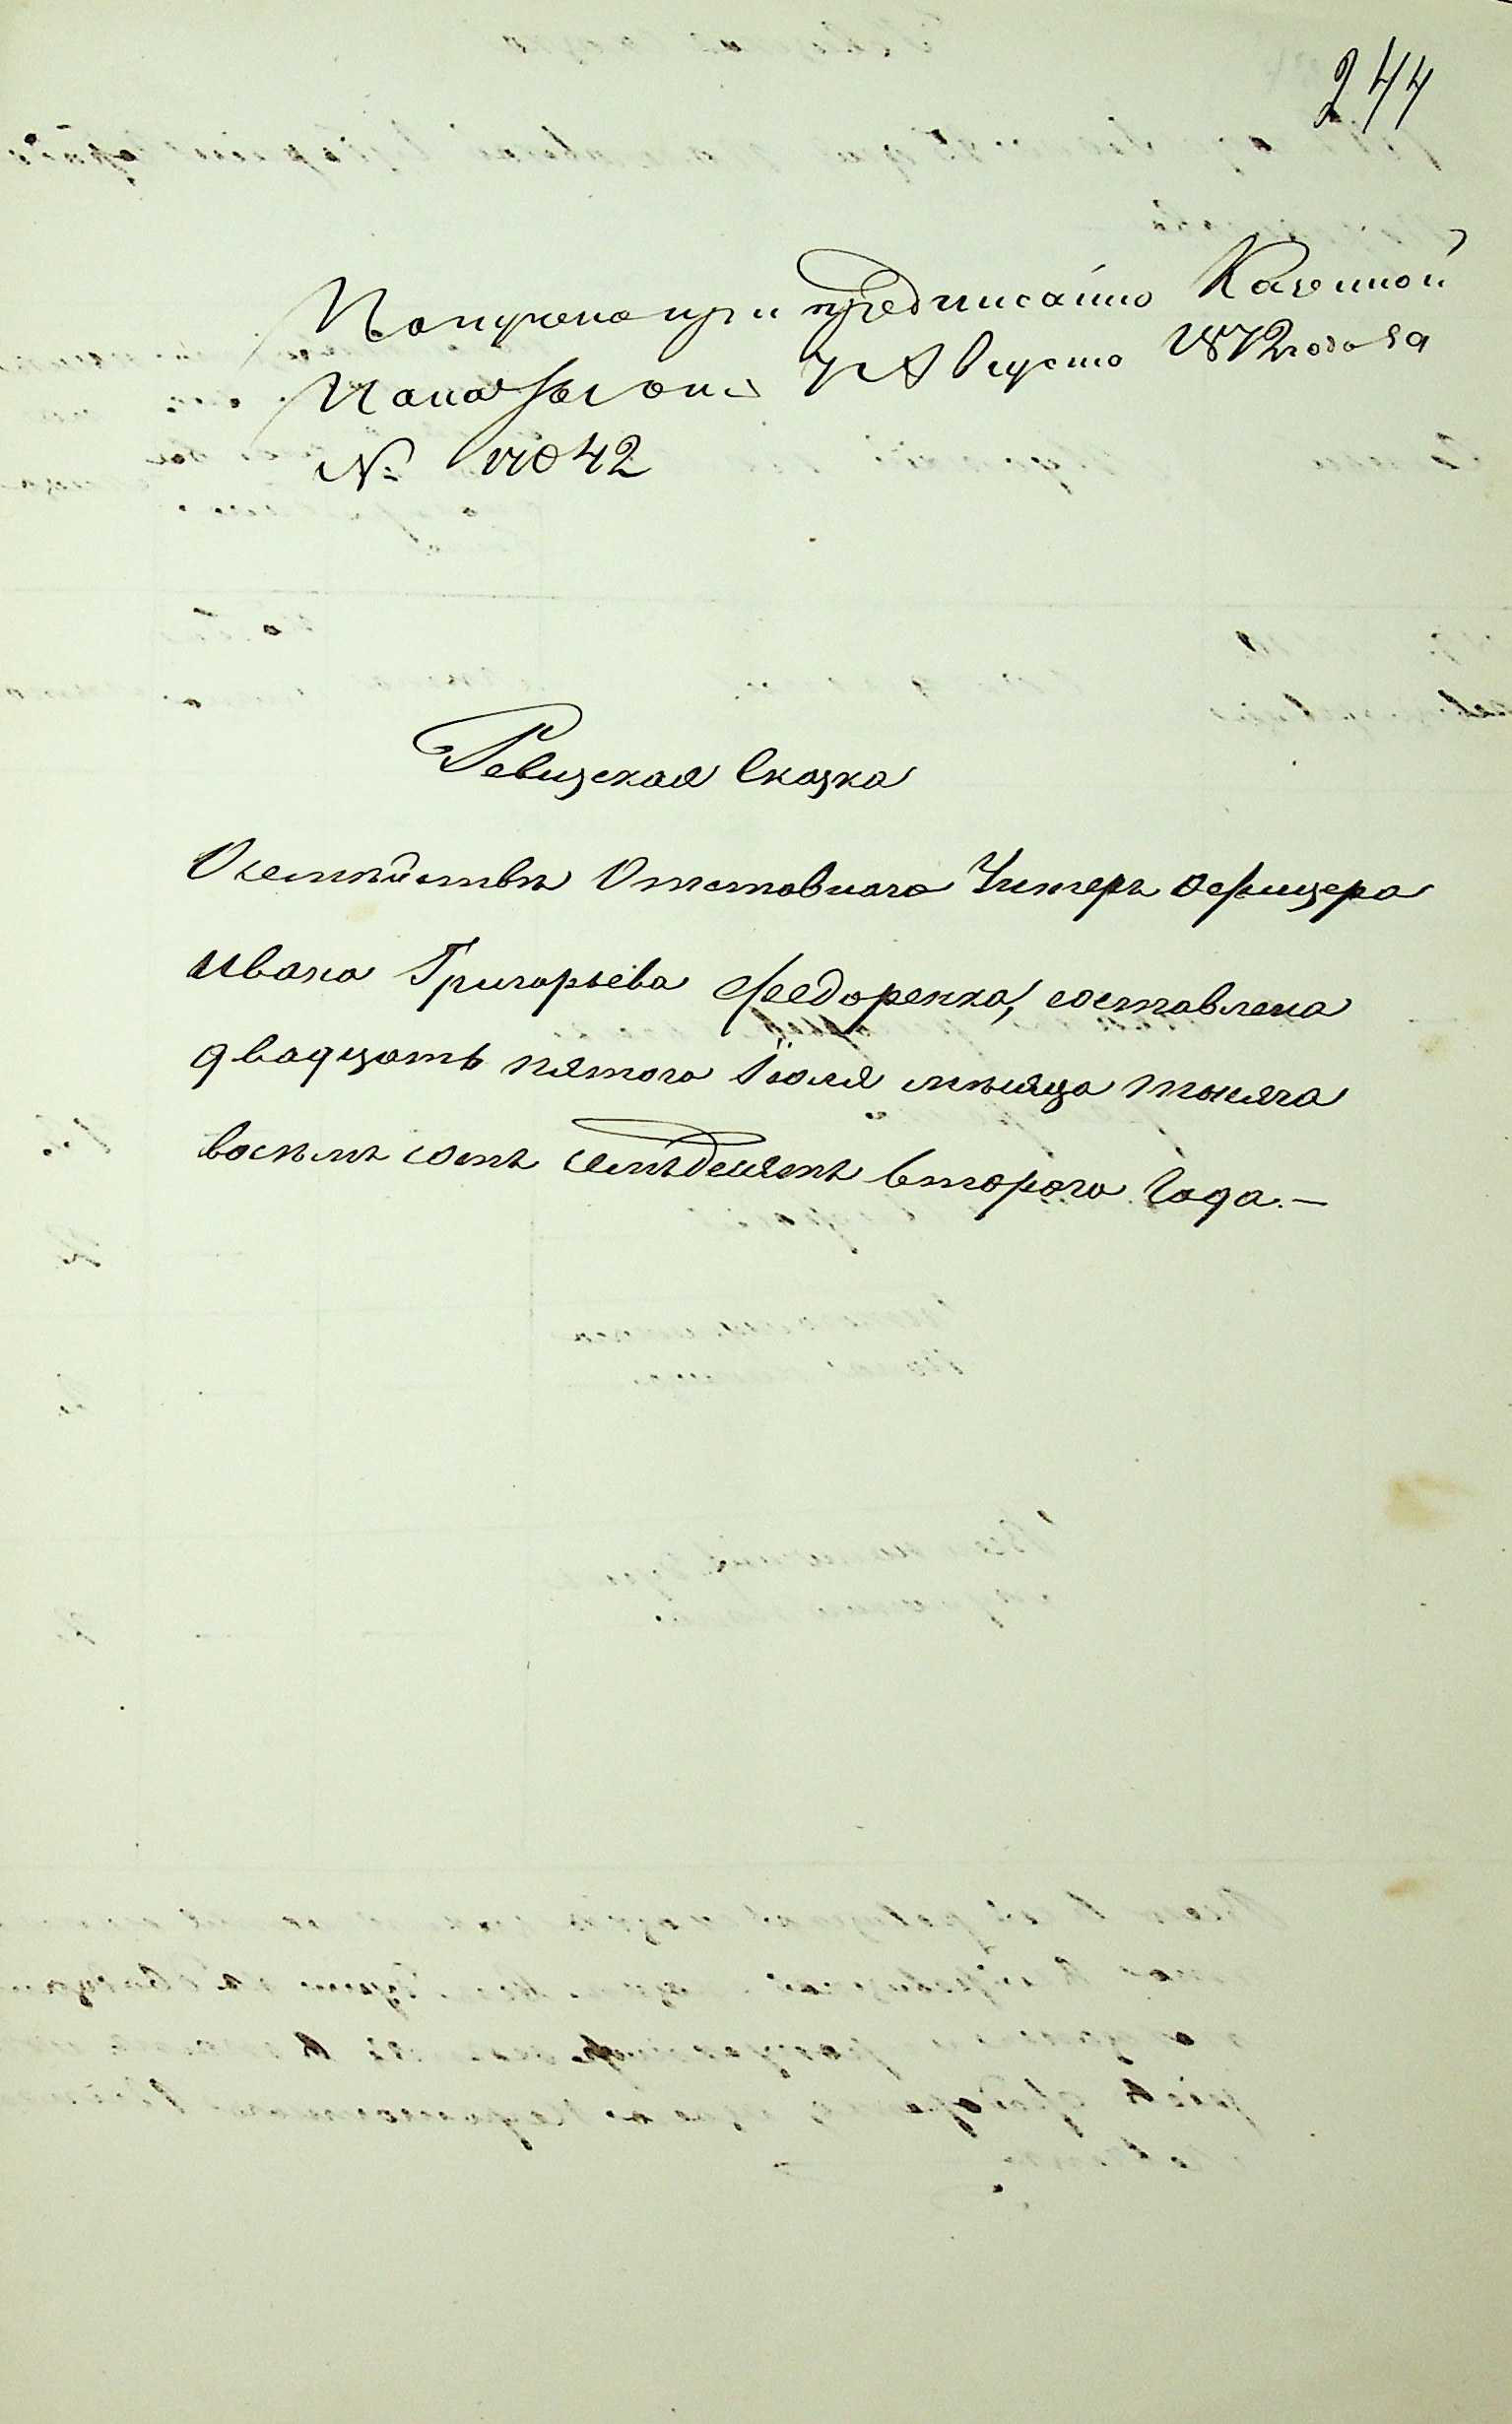 244
Получено при предписанію Казенной
Палаты отъ 7 Августа 1872 года за
№ 11042
Ревизская Сказка
О семѣйствѣ Отставнаго Унтеръ офицера
Ивана Григорьева Федоренка, составлена
двадцать пятого Іюля мѣсяца тысяча
восѣмъ сотъ семѣдесятъ второго Года. —